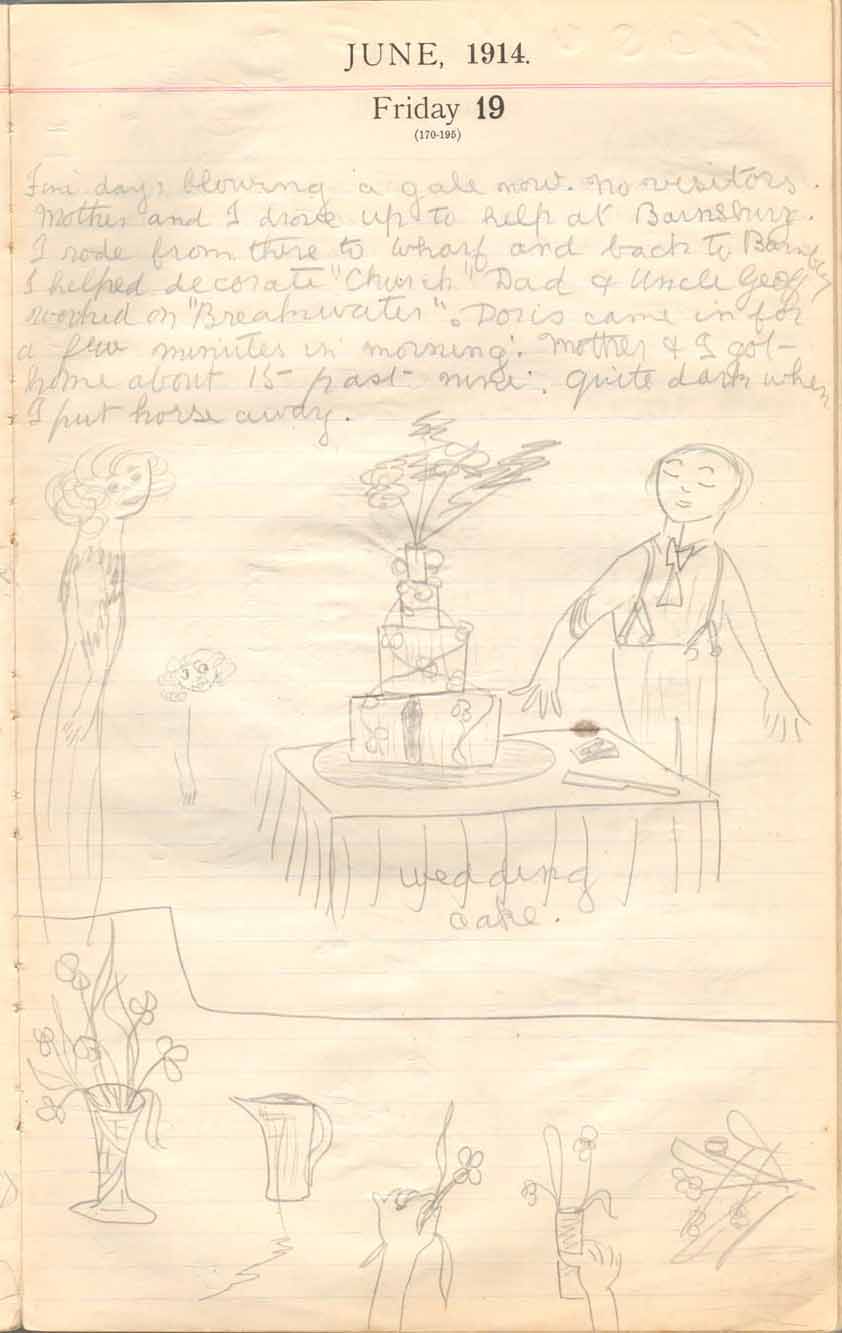 JUNE, 1914.
Friday 19
(170-195)
Fine day; blowing a gale now. No visitors.
Mother and I drove up to help at Barnsbury.
I rode from there to wharf and back to
I helped decorate "Church" Dad & Uncle Geof
worked on "Breakwater". Doris came in for
a few minutes in morning. Mother & I got
home about 15 past nine. quite dark when
I put horse away.
wedding
cake.